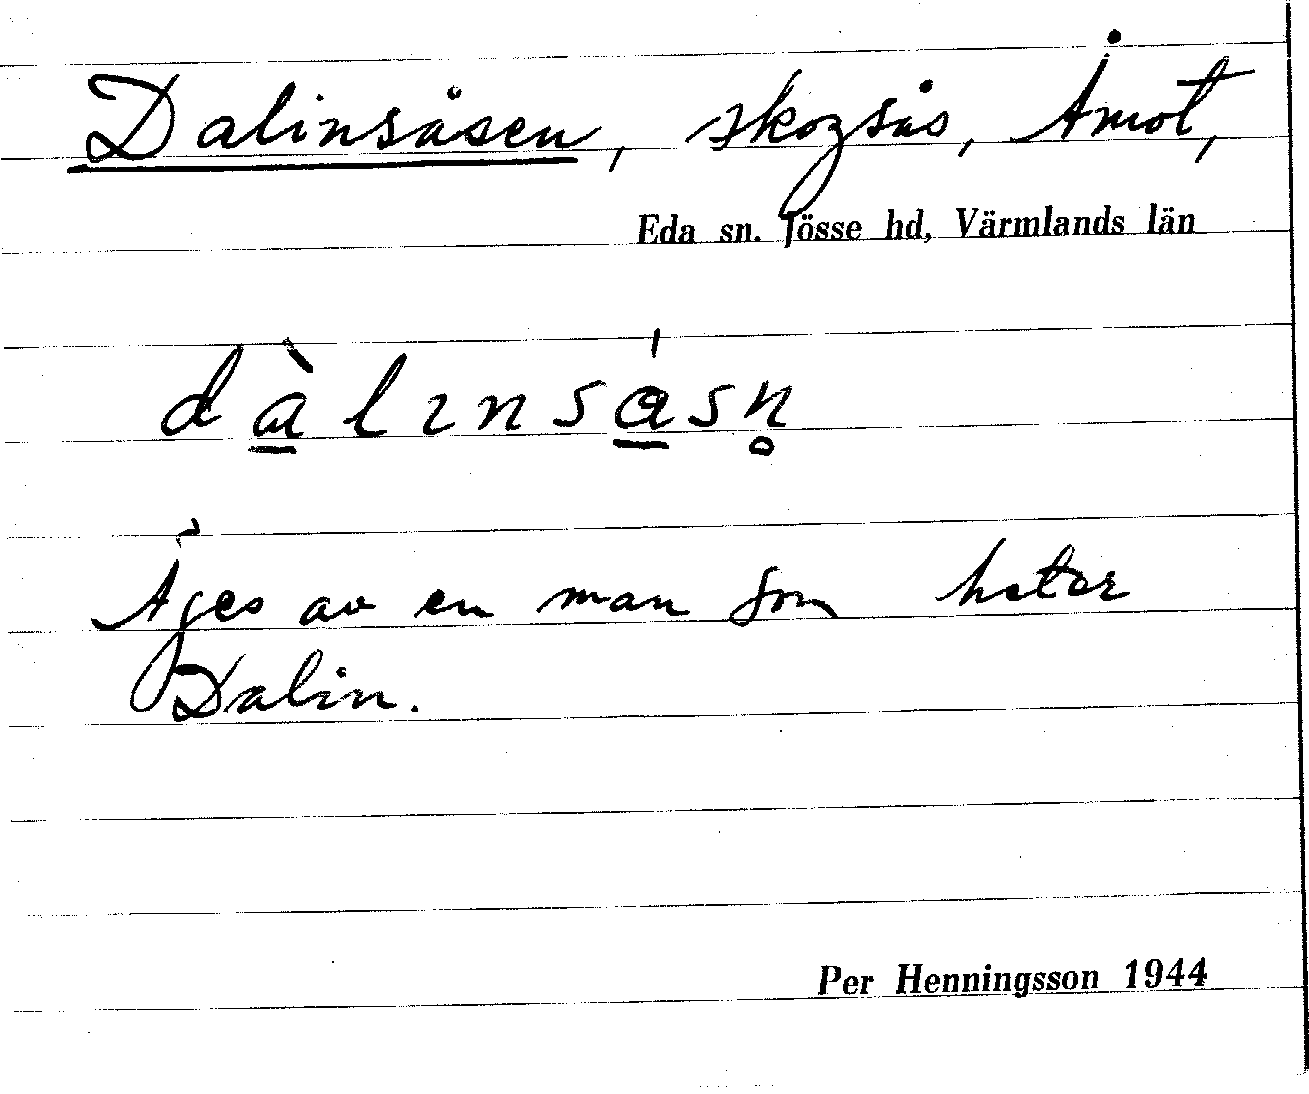 Dalinsåsen, skogsås, Åmot,
Eda sn. Jösse hd, Värmlands län
dà̱lɪnsǻ̱sn̥
Äges av en man som heter
Dalin.
Per Henningsson 1944